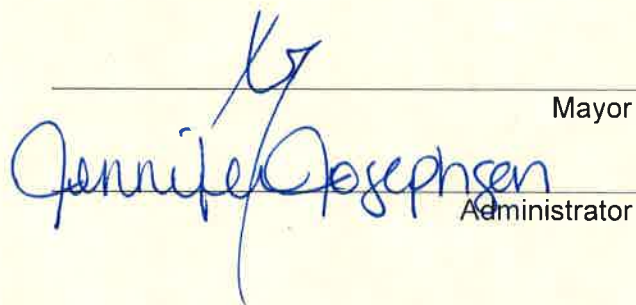 Mayor
Jennifer Josephsen
Administrator